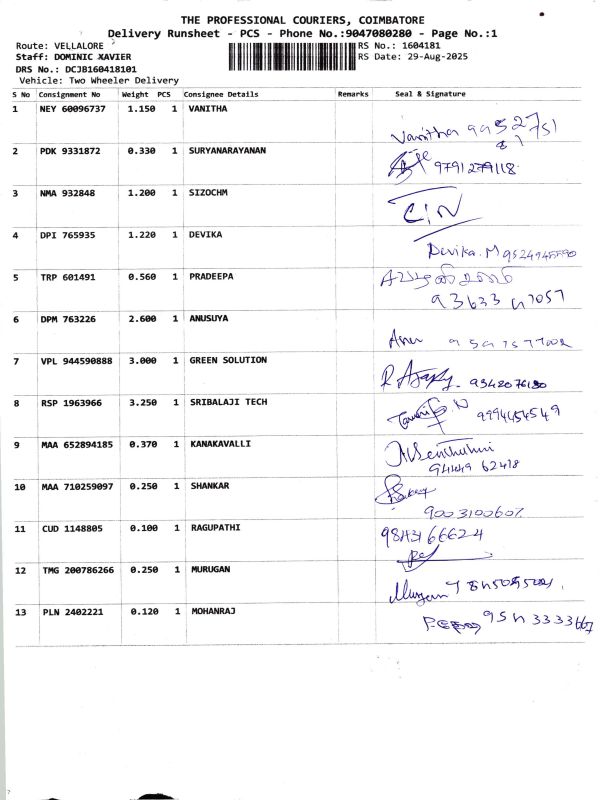 THE PROFESSIONAL COURIERS, COIMBATORE
Delivery Runsheet - PCS - Phone No.:9047080280 - Page No.:1
Route: VELLALORE RS No.: 1604181
Staff: DOMINIC XAVIER RS Date: 29-Aug-2025
DRS No.: DCJB160418101
Vehicle: Two Wheeler Delivery
S No Consignment No Weight PCS Consignee Details Remarks Seal & Signature
1 NEY 60096737 1.150 1 VANITHA
Vanitha 99527 751
81
2 PDK 9331872 0.330 1 SURYANARAYANAN
9791279118
3 NMA 932848 1.200 1 SIZOCHM
4 DPI 765935 1.220 1 DEVIKA
Devika.M 9524945590
5 TRP 601491 0.560 1 PRADEEPA
93633 47057
6 DPM 763226 2.600 1 ANUSUYA
Anu
7 VPL 944590888 3.000 1 GREEN SOLUTION
9342076130
8 RSP 1963966 3.250 1 SRIBALAJI TECH
9994454549
9 MAA 652894185 0.370 1 KANAKAVALLI
94449 62418
10 MAA 710259097 0.250 1 SHANKAR
9003100607
11 CUD 1148805 0.100 1 RAGUPATHI
9843166624
12 TMG 200786266 0.250 1 MURUGAN
Murugan
13 PLN 2402221 0.120 1 MOHANRAJ
9543333667